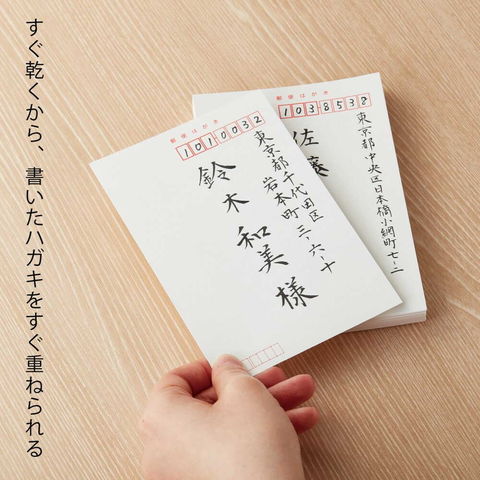 すぐ乾くから、書いたハガキをすぐ重ねられる
郵便はがき
1010032
東京都千代田区
岩本町三-六-十
鈴木和美様
郵便はがき
1038538
東京都中央区日本橋小網町七-二
佐藤